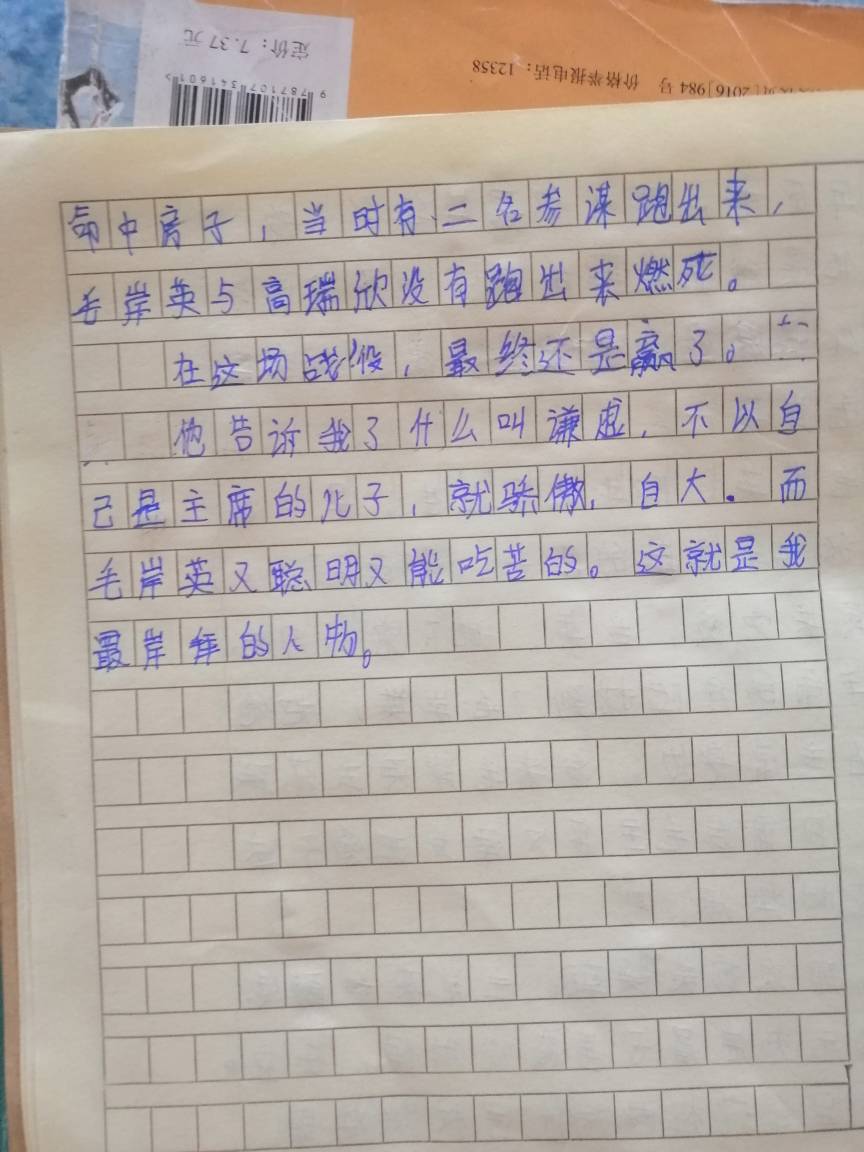 定价：7.37元
9 787107 341601
[2016]984号 价格举报电话：12358
命中房子，当时有二名参谋跑出来，
毛岸英与高瑞欣没有跑出来燃死。
在这场战役，最终还是赢了。
他告诉我了什么叫谦虚，不以自
己是主席的儿子，就骄傲，自大．而
毛岸英又聪明又能吃苦的。这就是我
最岸拜的人物。